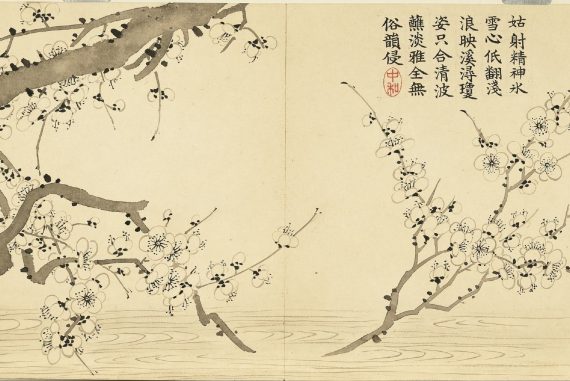 姑射精神氷
雪心低翻淺
浪映溪潯瓊
姿只合清波
蘸淡雅全無
俗韻侵
中和